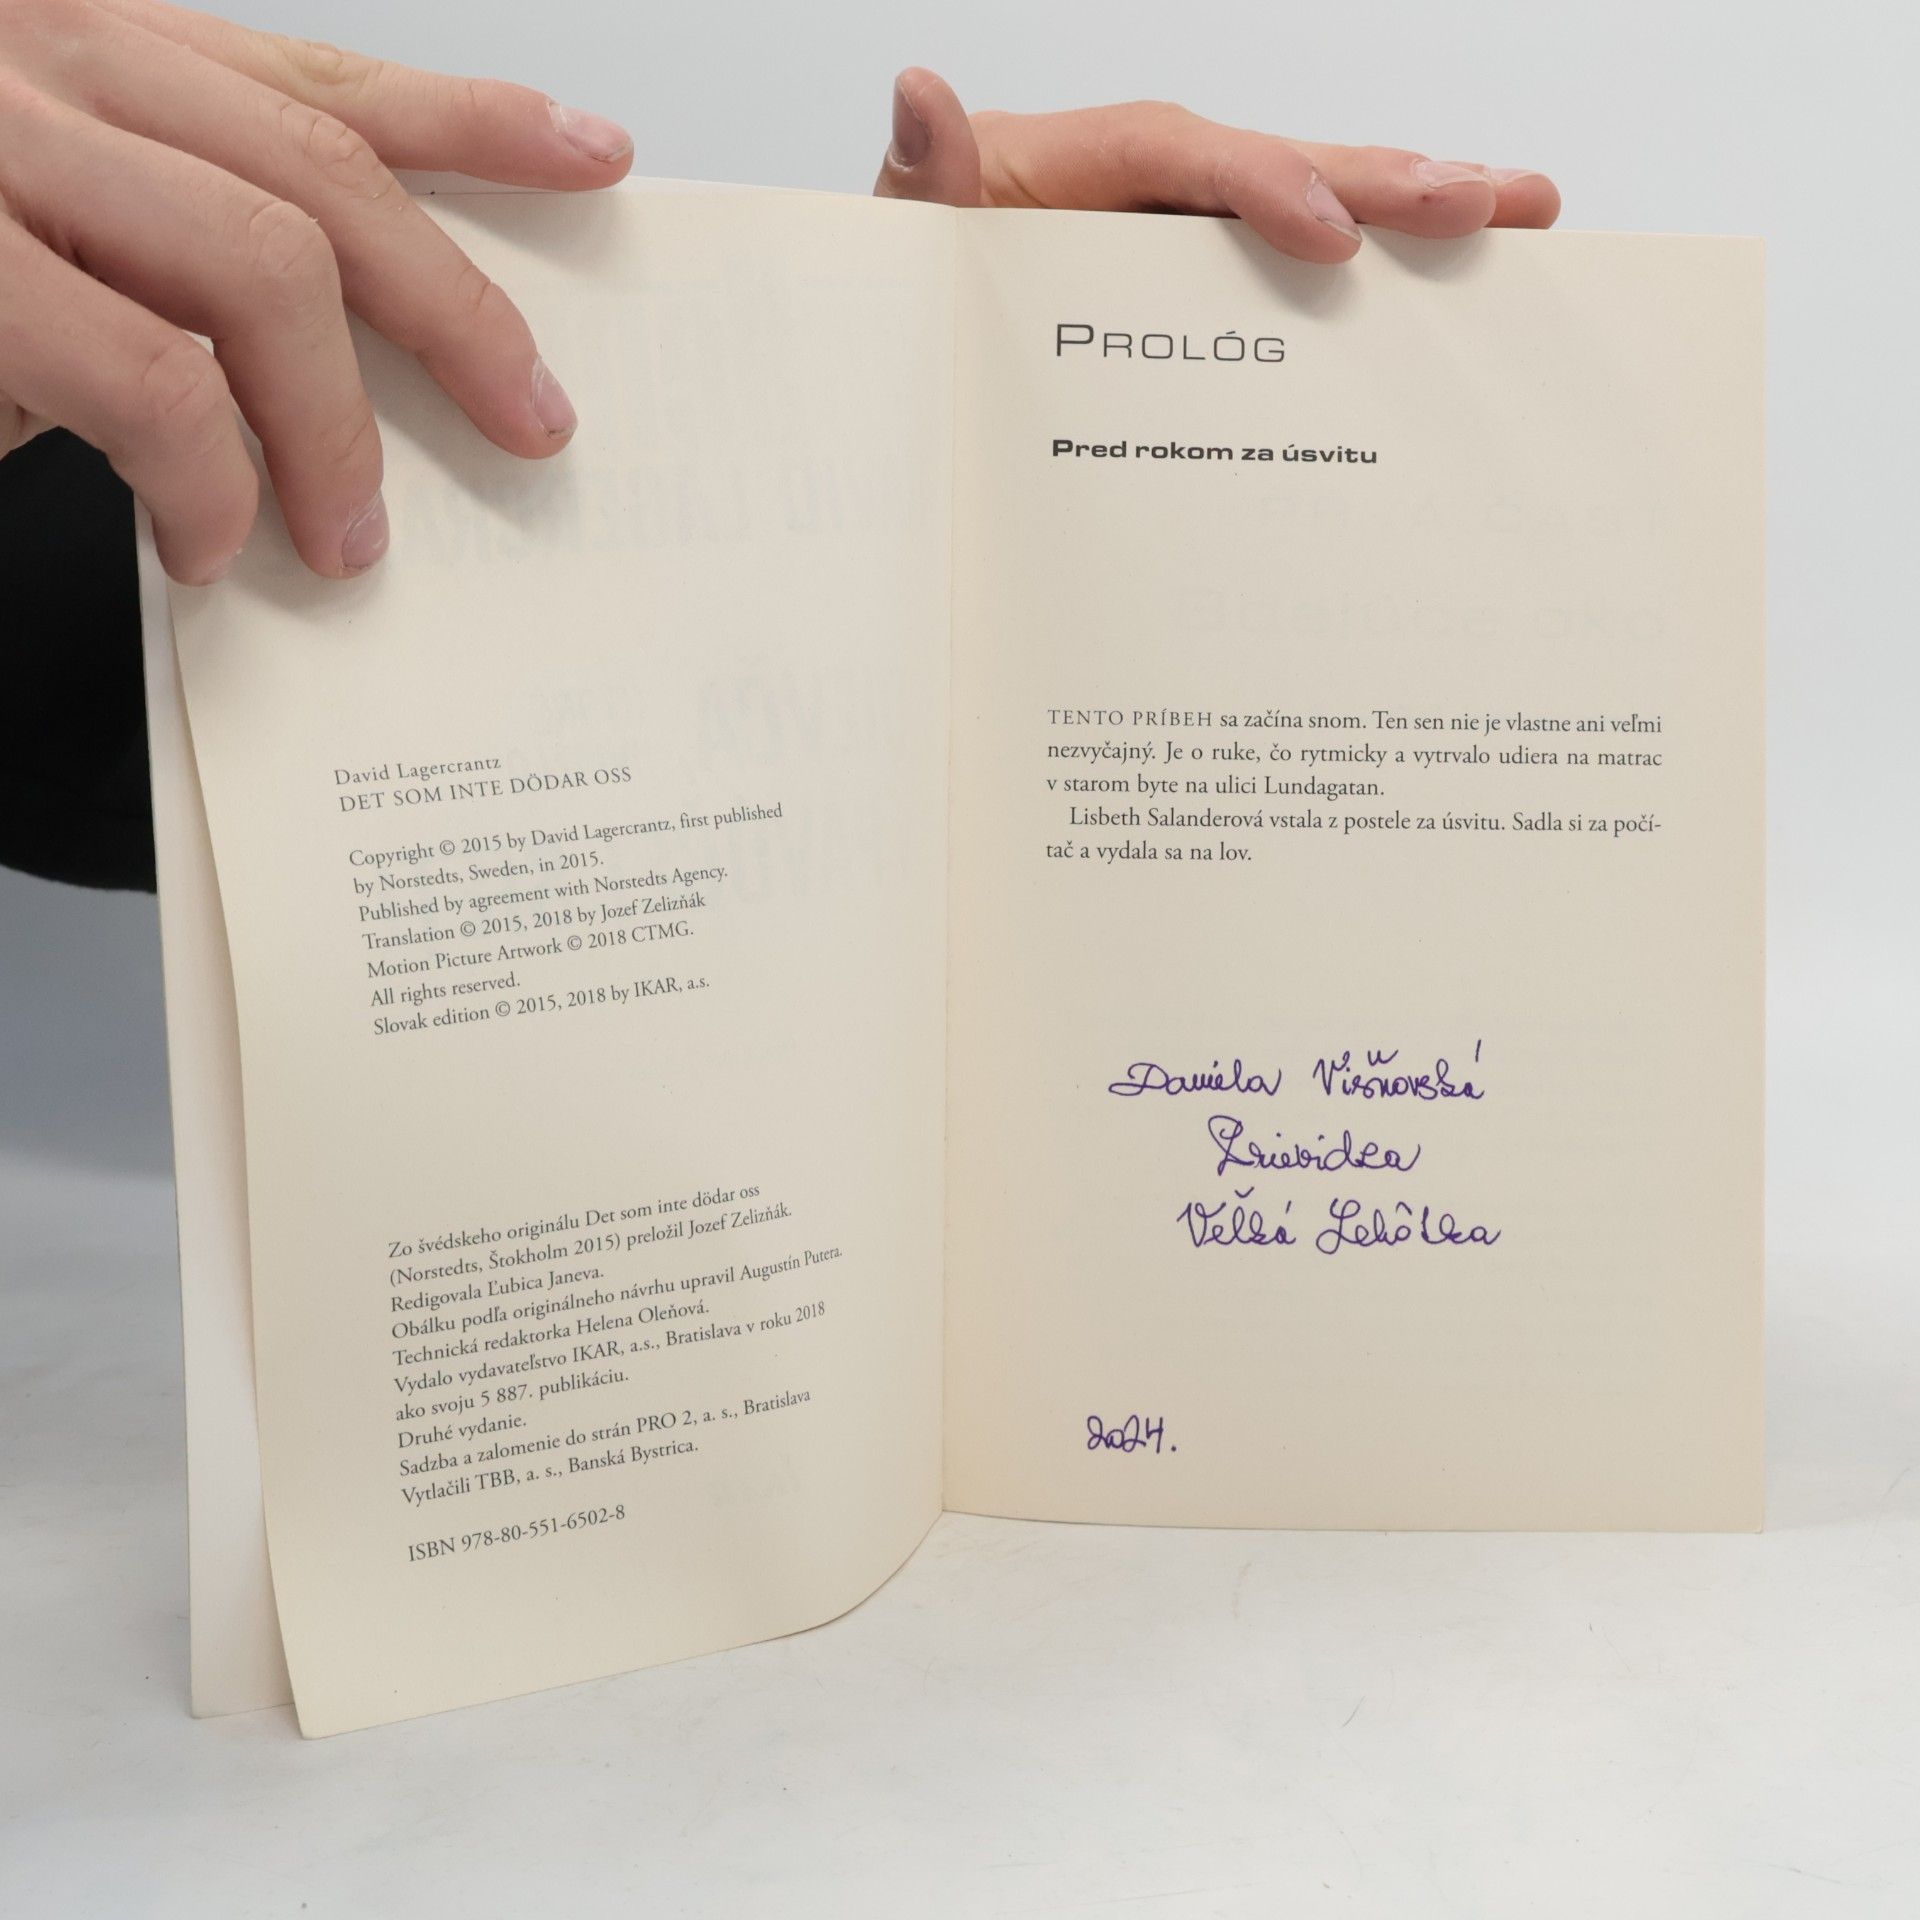 David Lagercrantz
DET SOM INTE DÖDAR OSS
Copyright © 2015 by David Lagercrantz, first published
by Norstedts, Sweden, in 2015.
Published by agreement with Norstedts Agency.
Translation © 2015, 2018 by Jozef Zelizňák
Motion Picture Artwork © 2018 CTMG.
All rights reserved.
Slovak edition © 2015, 2018 by IKAR, a.s.
Zo švédskeho originálu Det som inte dödar oss
(Norstedts, Štokholm 2015) preložil Jozef Zelizňák.
Redigovala Ľubica Janeva.
Obálku podľa originálneho návrhu upravil Augustín Putera.
Technická redaktorka Helena Oleňová.
Vydalo vydavateľstvo IKAR, a.s., Bratislava v roku 2018
ako svoju 5 887. publikáciu.
Druhé vydanie.
Sadzba a zalomenie do strán PRO 2, a. s., Bratislava
Vytlačili TBB, a. s., Banská Bystrica.
ISBN 978-80-551-6502-8
PROLÓG
Pred rokom za úsvitu
TENTO PRÍBEH sa začína snom. Ten sen nie je vlastne ani veľmi
nezvyčajný. Je o ruke, čo rytmicky a vytrvalo udiera na matrac
v starom byte na ulici Lundagatan.
Lisbeth Salanderová vstala z postele za úsvitu. Sadla si za počí-
tač a vydala sa na lov.
Daniela Višňovská
Prievidza
Veľká Lehôtka
2024.